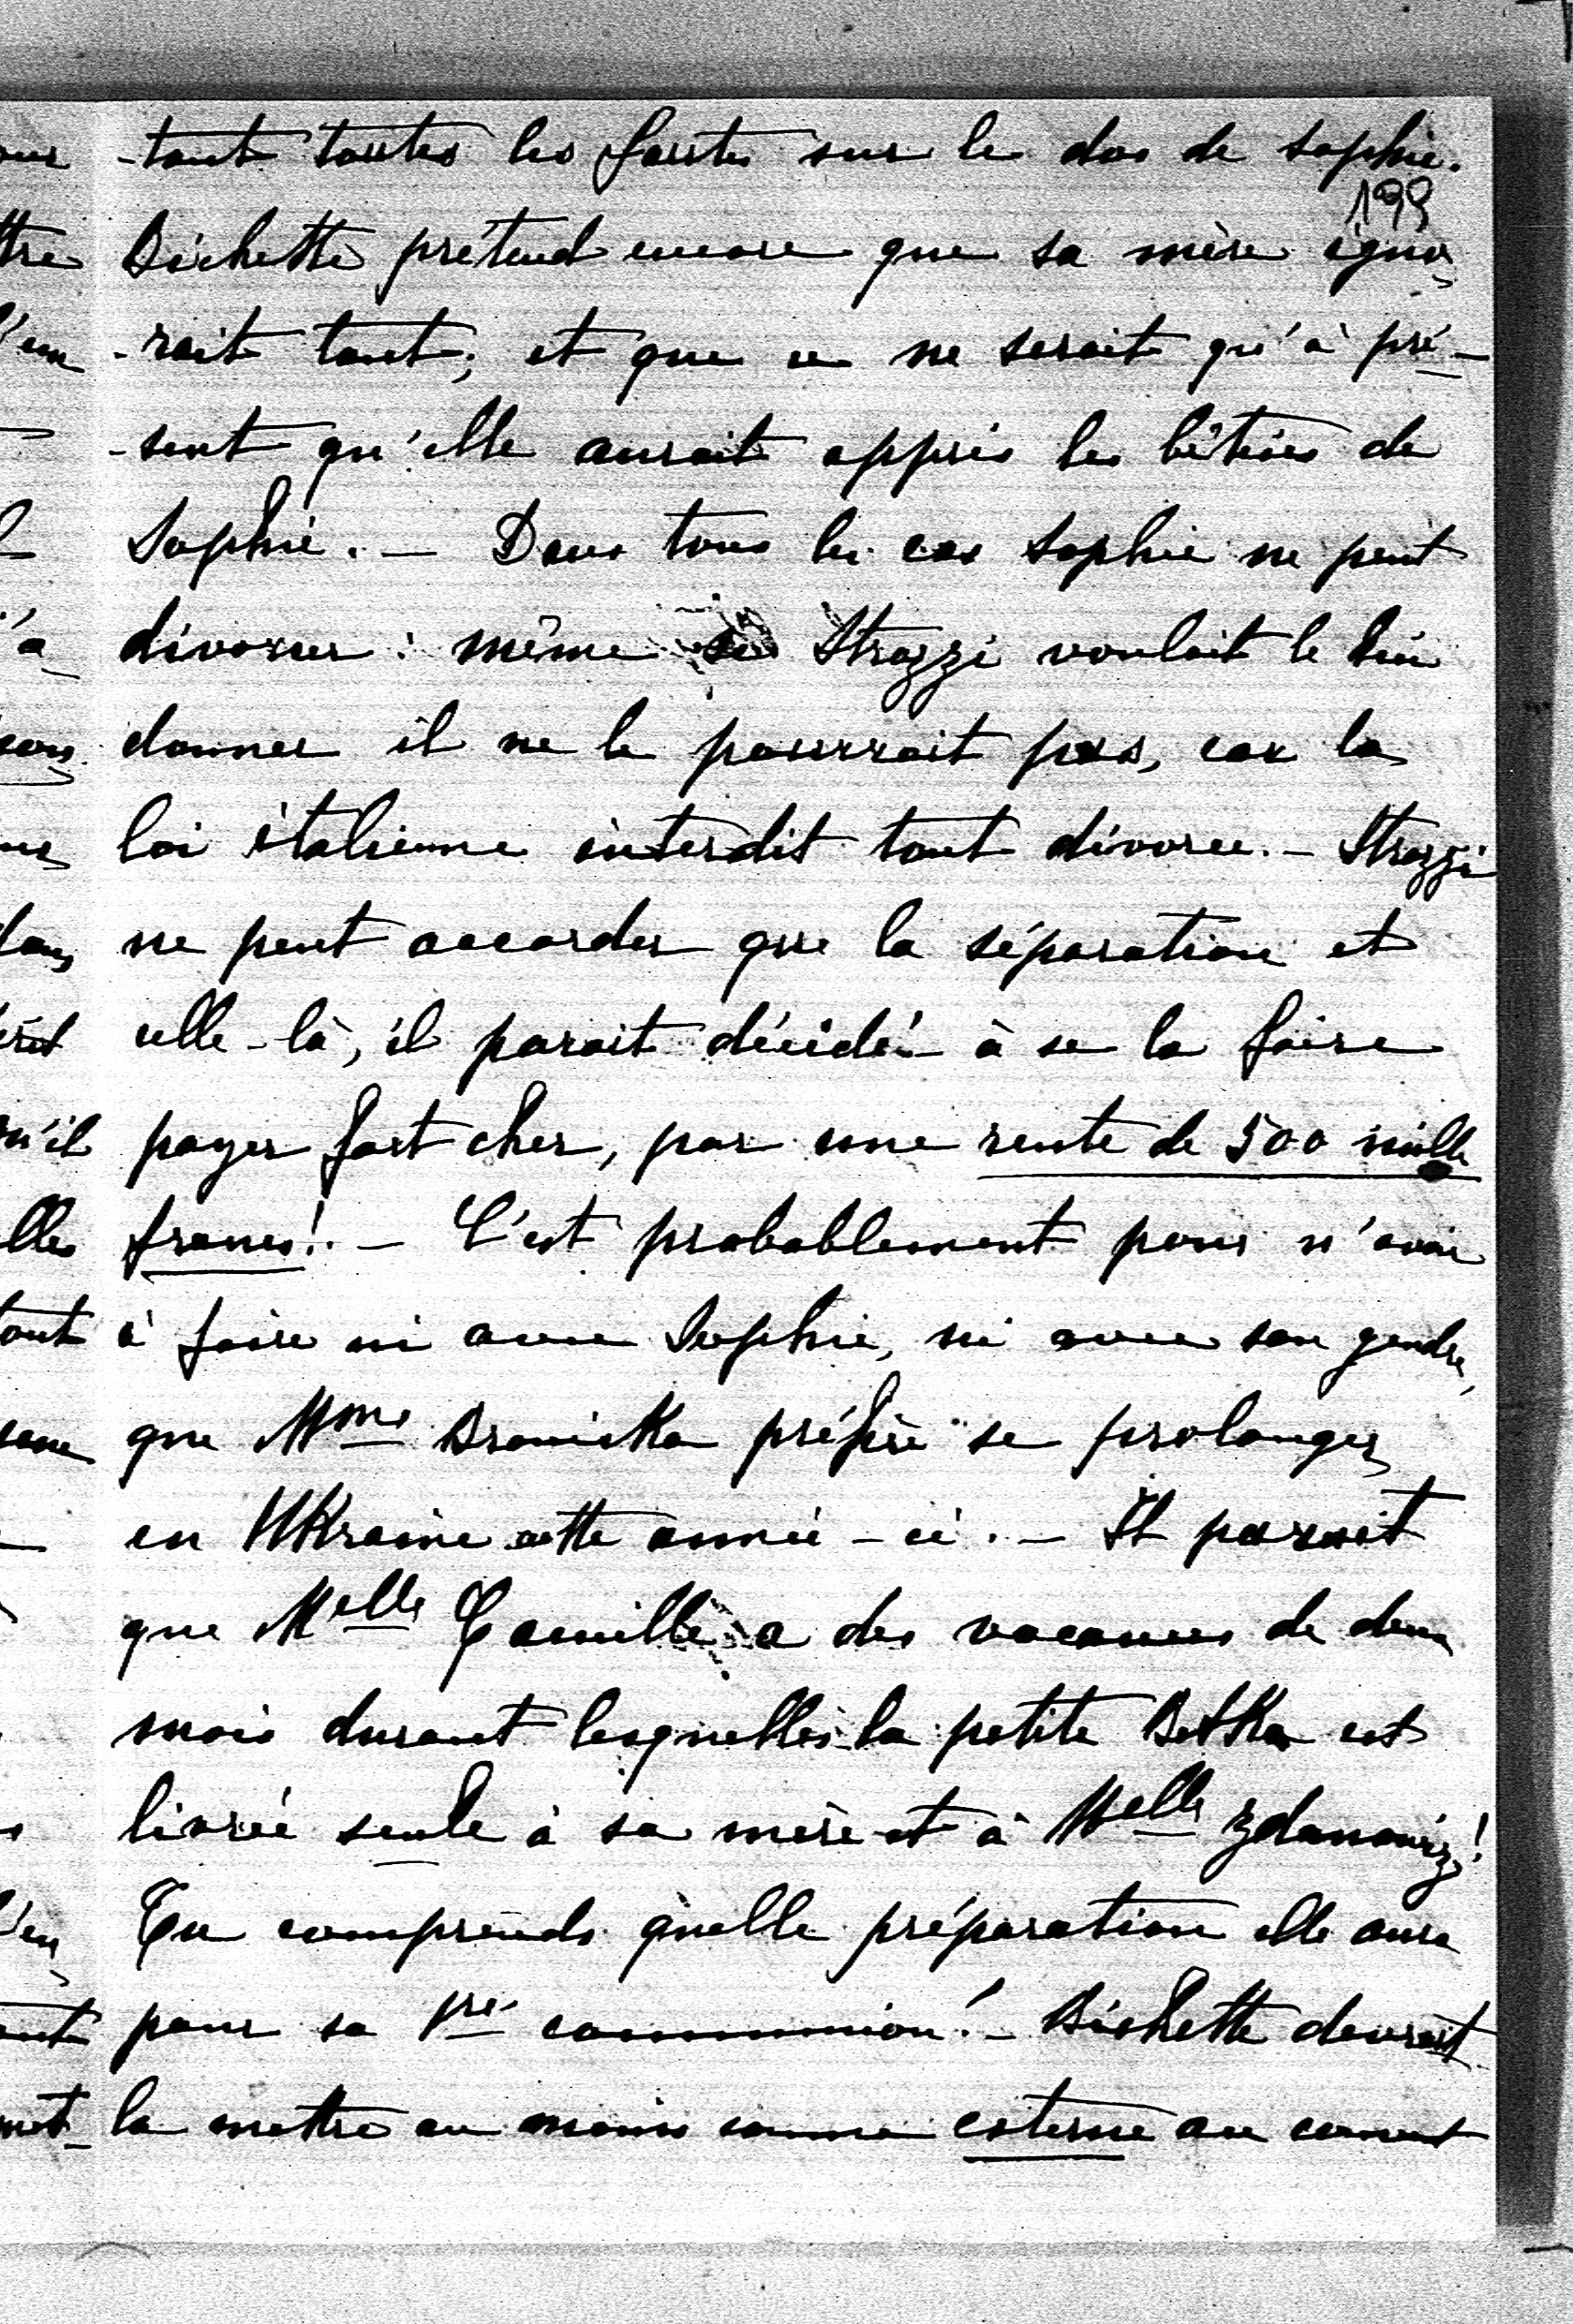 -tant toutes les fautes sur le dos de Sophie.
199
Bichette prétend encore que sa mère igno-
-rait tout, et que ce ne serait qu'à pré-
-sent qu'elle aurait appris les bêtises de
Sophie. — Dans tous les cas Sophie ne peut
divorcer : même si Strozzi voulait le lui
donner il ne le pourrait pas, car la
loi italienne interdit tout divorce. — Strozzi
ne peut accorder que la séparation et
celle-là, il parait décidé à se la faire
payer fort cher, par une rente de 500 mille
francs! — C'est probablement pour n'avoir
à faire ni avec Sophie, ni avec son gendre,
que Mme Branicka préfère se prolonger
en Ukraine cette année-ci. — Il parait
que Melle Camille a des vacances de deux
mois durant lesquelles la petite Betka est
livrée seule à sa mère et à Melle Zdanowicz!
Tu comprends quelle préparation elle aura
pour sa 1re communion! — Bichette devrait
la mettre au moins comme externe au couvent